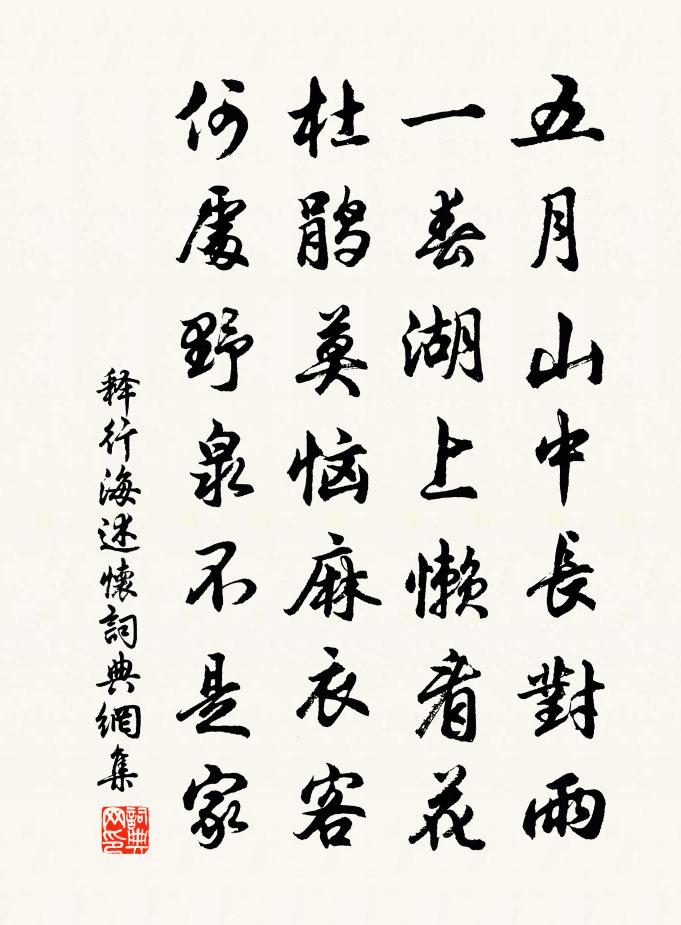 五月山中長對雨
一春湖上懶看花
杜鹃莫恼麻衣客
何處野泉不是家
释行海述懷詞典網集
詞典网印